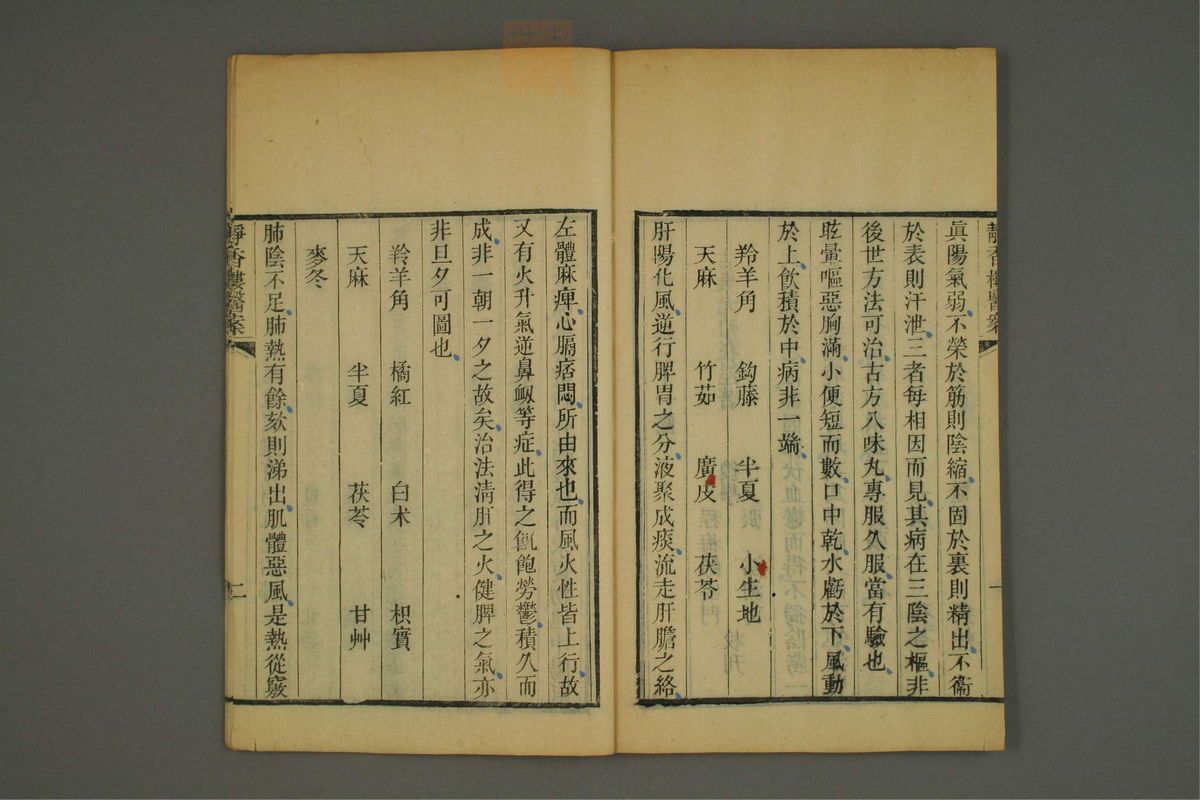 靜香樓醫案
一
眞陽氣弱不榮於筋則陰縮不固於裏則精出不衞
於表則汗泄三者每相因而見其病在三陰之樞非
後世方法可治古方八味丸專服久服當有驗也
眩暈嘔惡胸滿小便短而數口中乾水虧於下風動
於上飲積於中病非一端
羚羊角 鈎藤 半夏 小生地
天麻 竹茹 廣皮 茯苓
肝陽化風逆行脾胃之分液聚成痰流走肝膽之絡
左體麻痺心膈痞悶所由來也而風火性皆上行故
又有火升氣逆鼻衂等症此得之飢飽勞鬱積久而
成非一朝一夕之故矣治法清肝之火健脾之氣亦
非旦夕可圖也
羚羊角 橘紅 白朮 枳實
天麻 半夏 茯苓 甘艸
麥冬
肺陰不足肺熱有餘欬則涕出肌體惡風是熱從竅
靜香樓醫案
二